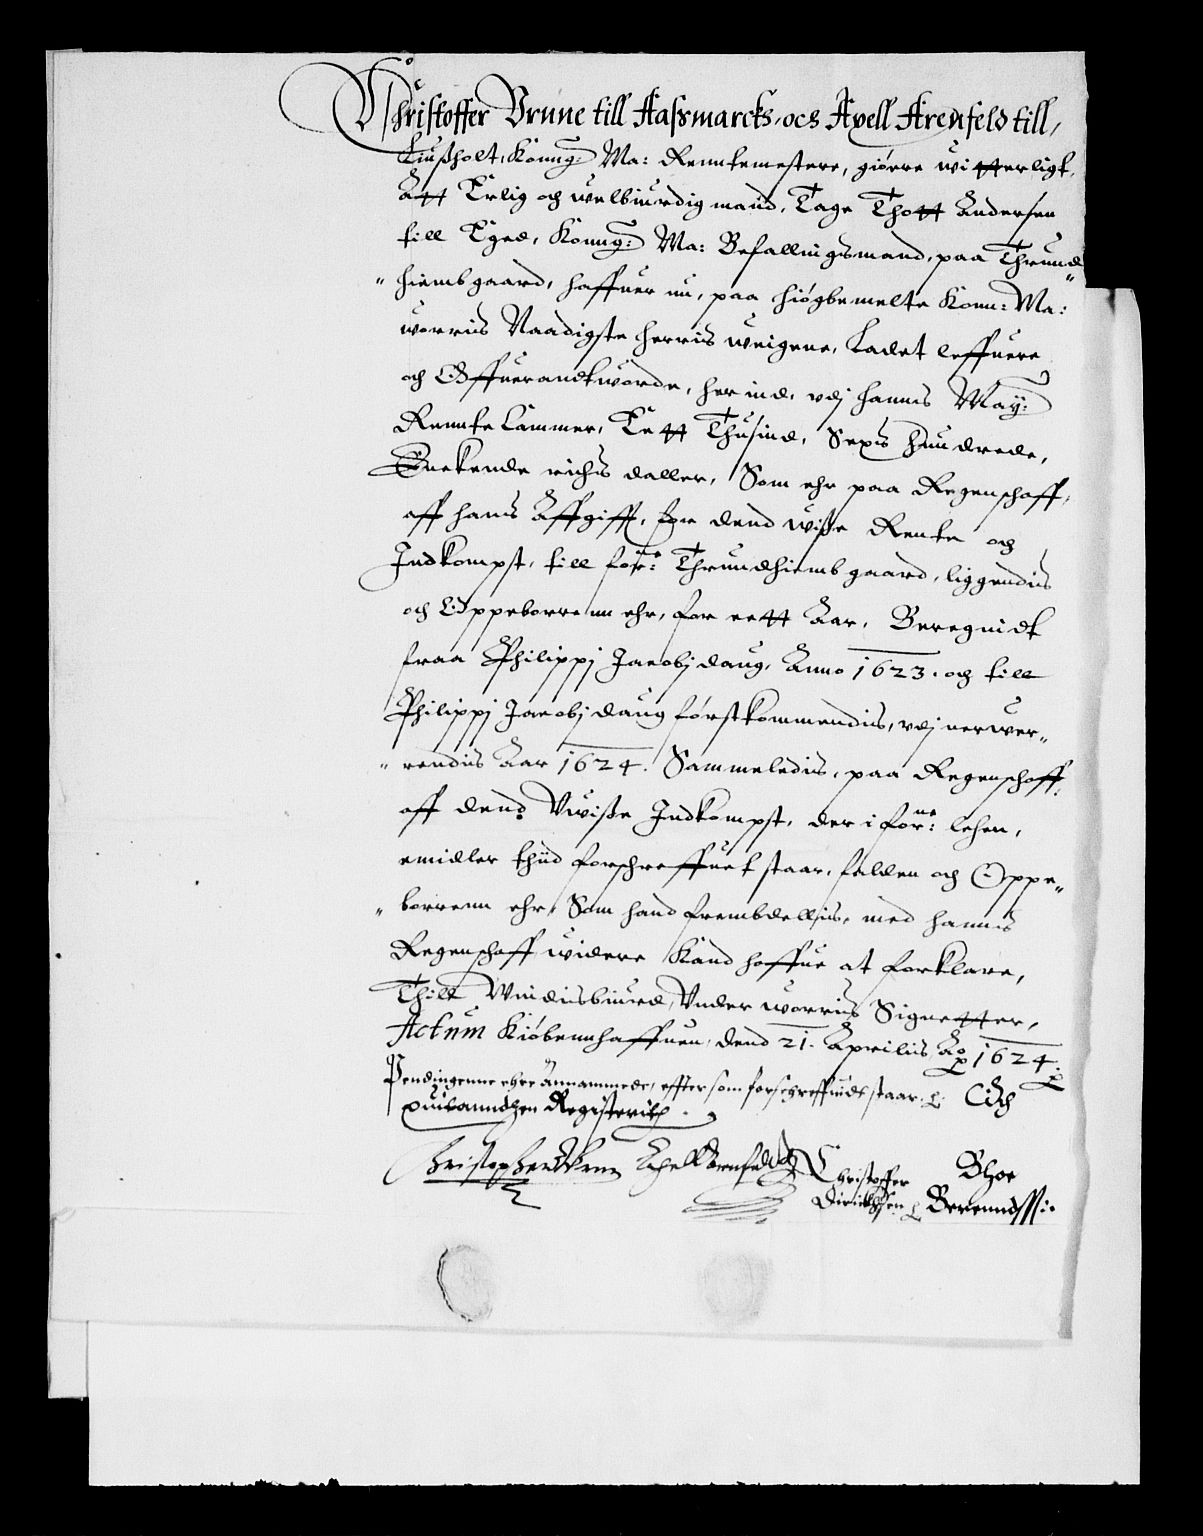 Christoffer Vrune till Aassmarcks, och Axell Arenfeld till,
Liußholt, Konng: Ma: Renntemestere, giörre witterligt,
Att Erlig och welbiurdig mand, Tage Thott Andersen
till Eged, Konng: Ma: Befallingsmand, paa Thrund„
„hiembgaard, haffuer nu, paa höigbemelte Konn: Ma:
worris Naadigste herris weigene, Ladet leffuere
och Offuerandtworde, her ind, vdj hannis May:
Rennte Cammer, Eett Thusind, Sexis hundrede,
Enekende richs daller, Som ehr paa Regenschaff,
aff hans Affgifft, for dend wiße Rente och
Indkompst, till forne: Thrundhiembgaard, liggendis
och Oppeborrenn ehr, for eett Aar, Beregnidt
fraa Philippj Jacobj daug, Anno 1623. och till
Philippj Jacobj daug förstkommendis, vdj nerwer„
„rendis Aar 1624. Sammeledis, paa Regenschaff,
aff dend Vwiße Indkompst, der i forne: lehen,
emidler thiid forschreffuet staar, falden och Oppe„
„borrenn ehr, Som hand frembdellis, med hannis
Regenschaff widere Kand haffue at forklare,
Thill Vindisbiurd, Vnder worris Signetter,
Actum Kiöbennhaffuen, dend 21. Aprilis Ao 1624.
Pendingenne ehre Annammede, effter som forschreffuidt staar. Och
quitanndzen Registerith.
Christopher Vrne Axell Arenfeld Christoffer Bhoe
Dirichsen Berenndss: